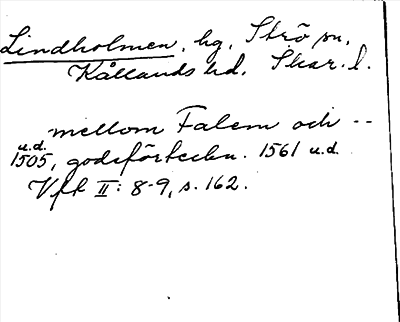 Lindholmen, hg, Strö sn,
Kållands hd. Skar. l.
mellom Falem och --
u.d.
1505, godsförteckn. 1561 u.d.
Vft II: 8-9, s. 162.